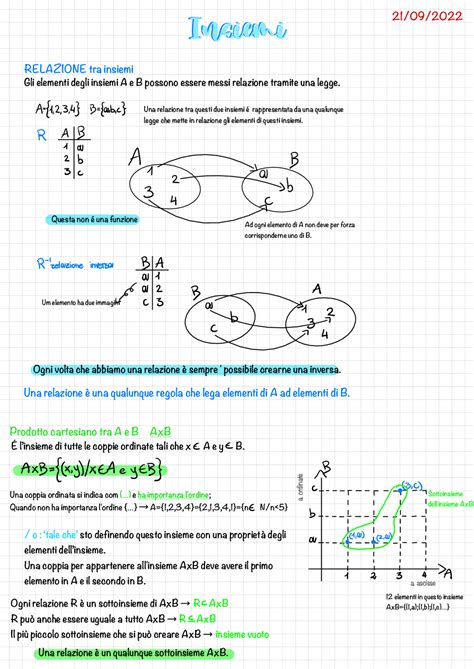 Insiemi
21/09/2022
RELAZIONE tra insiemi
Gli elementi degli insiemi A e B possono essere messi relazione tramite una legge.
A={1,2,3,4} B={a,b,c}
Una relazione tra questi due insiemi é rappresentata da una qualunque
legge che mette in relazione gli elementi di questi insiemi.
R A B
1 a
2 b
3 c
A B
1 2 3 4
a b c
Questa non é una funzione
Ad ogni elemento di A non deve per forza
corrisponderne uno di B.
R⁻¹ relazione inversa
B A
a 1
a 2
c 3
Um elemento ha due immagini
B A
a b c
1 2 3 4
Ogni volta che abbiamo una relazione è sempre ' possibile crearne una inversa.
Una relazione è una qualunque regola che lega elementi di A ad elementi di B.
Prodotto cartesiano tra A e B AxB
È l'insieme di tutte le coppie ordinate tali che x ∈ A e y ∈ B.
AxB={(x,y)/x∈A e y∈B}
Una coppia ordinata si indica com (...) e ha importanza l'ordine;
Quando non ha importanza l'ordine {...} → A={1,2,3,4}={2,1,3,4,}={n∈ N/n<5}
/ o : 'tale che' sto definendo questo insieme con una proprietà degli
elementi dell'insieme.
Una coppia per appartenere all'insieme AxB deve avere il primo
elemento in A e il secondo in B.
Ogni relazione R è un sottoinsieme di AxB → R⊂AxB
R può anche essere uguale a tutto AxB → R⊆AxB
Il più piccolo sottoinsieme che si può creare AxB → insieme vuoto
Una relazione è un qualunque sottoinsieme AxB.
B
a. ordinate
c
b
a
(3,c)
(1,a) (2,a)
1 2 3 4 A
a. ascisse
Sottoinsieme
dell'insieme AxB
12 elementi in questo insieme